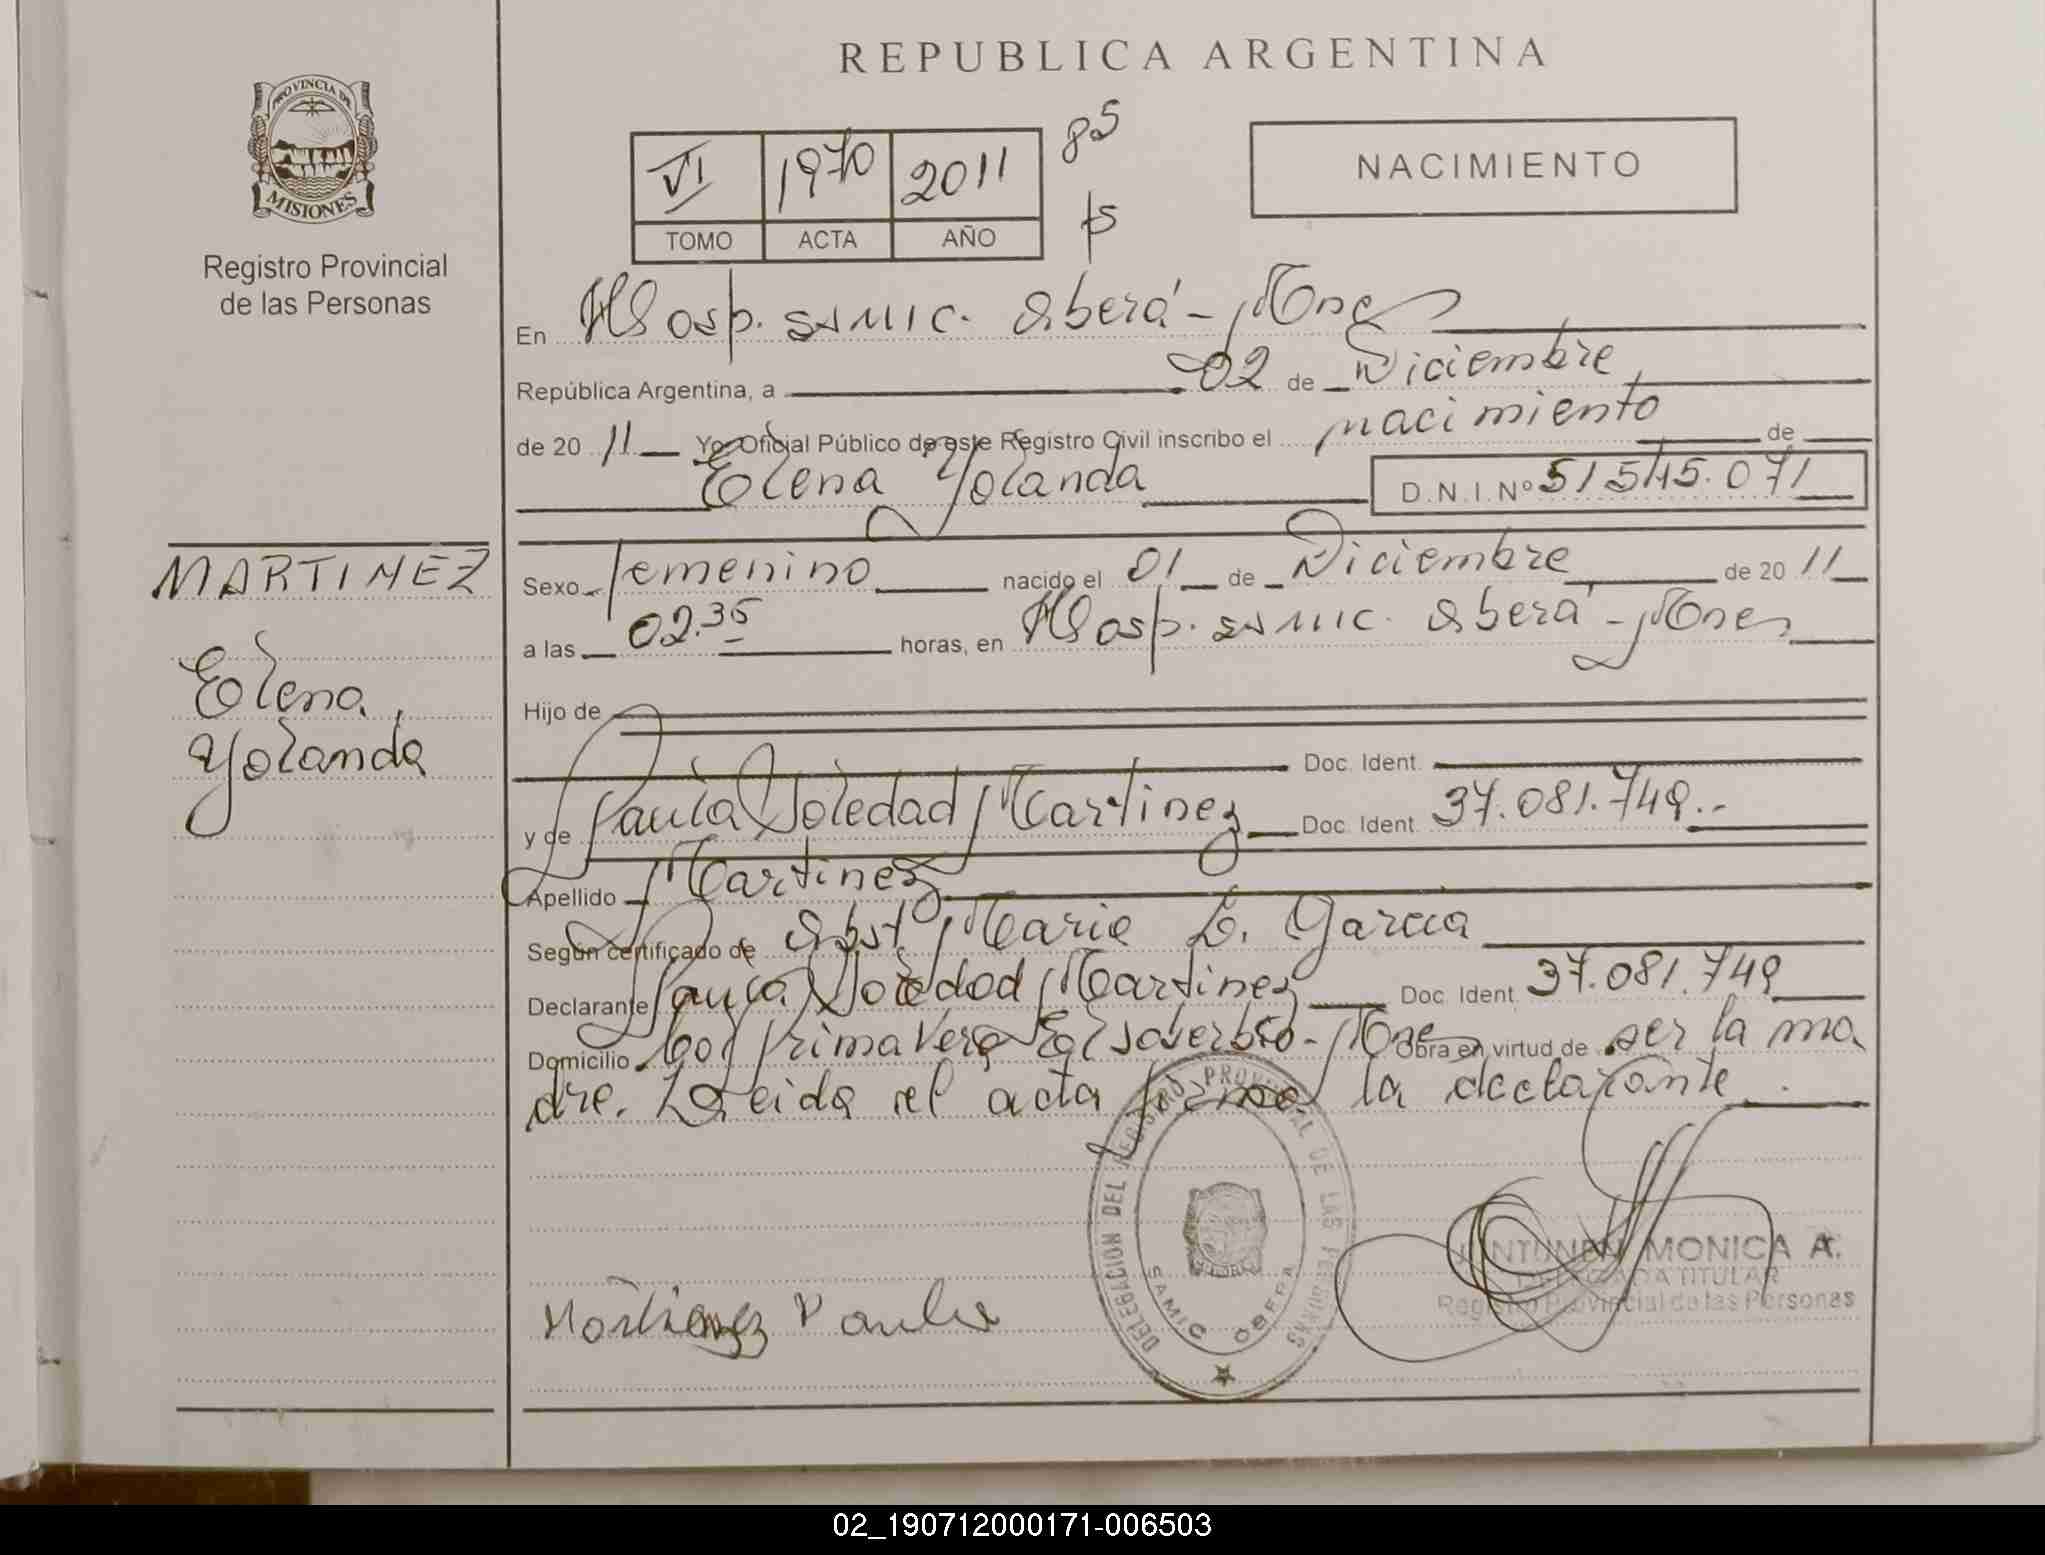 REPUBLICA ARGENTINA
PROVINCIA DE
MISIONES
Registro Provincial
de las Personas
VI 1970 2011
TOMO ACTA AÑO
85
NACIMIENTO
En Hosp. SAMIC. Oberá - Mnes
República Argentina, a 02 de Diciembre
de 20 11 Yo Oficial Público de este Registro Civil inscribo el nacimiento de
Elena Yolanda D.N.I.Nº 51.545.071
MARTINEZ
Elena,
Yolanda
Sexo femenino nacido el 01 de Diciembre de 20 11
a las 02.35 horas, en Hosp. SAMIC. Oberá - Mnes
Hijo de
Doc. Ident.
y de Paula Soledad Martinez Doc. Ident. 37.081.749.-
Apellido Martinez
Según certificado de Obst. Maria L. Garcia
Declarante Paula Soledad Martinez Doc. Ident. 37.081.749
Domicilio Co. Primavera El Soberbio - Mnes Obra en virtud de ser la ma
dre. Leida el acta firma la declarante.
DELEGACION DEL REGISTRO PROVINCIAL DE LAS PERSONAS
SAMIC OBERA
Martinez Paula
JUNTUNEN MONICA A.
DELEGADA TITULAR
Registro Provincial de las Personas
02_190712000171-006503